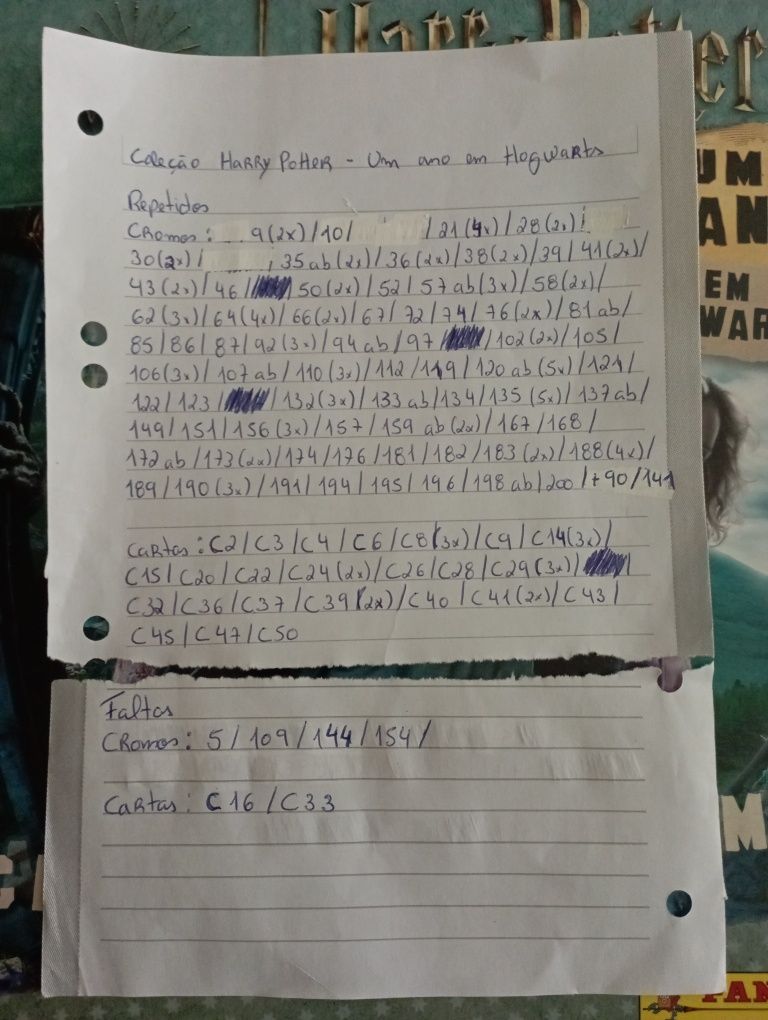 Harry Potter
UM
AN
EM
WAR
Coleção HARRY POTTER - Um ano em Hogwarts
Repetidos
CRomos: 9(2x)/10/ /21(4x)/28(2x)/
30(2x)/ 35ab(2x)/36(2x)/38(2x)/39/41(2x)/
43(2x)/46/ 50(2x)/52/57ab(3x)/58(2x)/
62(3x)/64(4x)/66(2x)/67/72/74/76(2x)/81ab/
85/86/87/92(3x)/94ab/97/ /102(2x)/105/
106(3x)/107ab/110(3x)/112/119/120ab(5x)/121/
122/123/ /132(3x)/133ab/134/135(5x)/137ab/
149/151/156(3x)/157/159ab(2x)/167/168/
172ab/173(2x)/174/176/181/182/183(2x)/188(4x)/
189/190(3x)/191/194/195/196/198ab/200/+90/141
CaRtas: C2/C3/C4/C6/C8(3x)/C9/C14(3x)/
C15/C20/C22/C24(2x)/C26/C28/C29(3x)/
C32/C36/C37/C39(2x)/C40/C41(2x)/C43/
C45/C47/C50
Faltas
CRomos: 5/109/144/154/
CaRtas: C16/C33
M
PAN